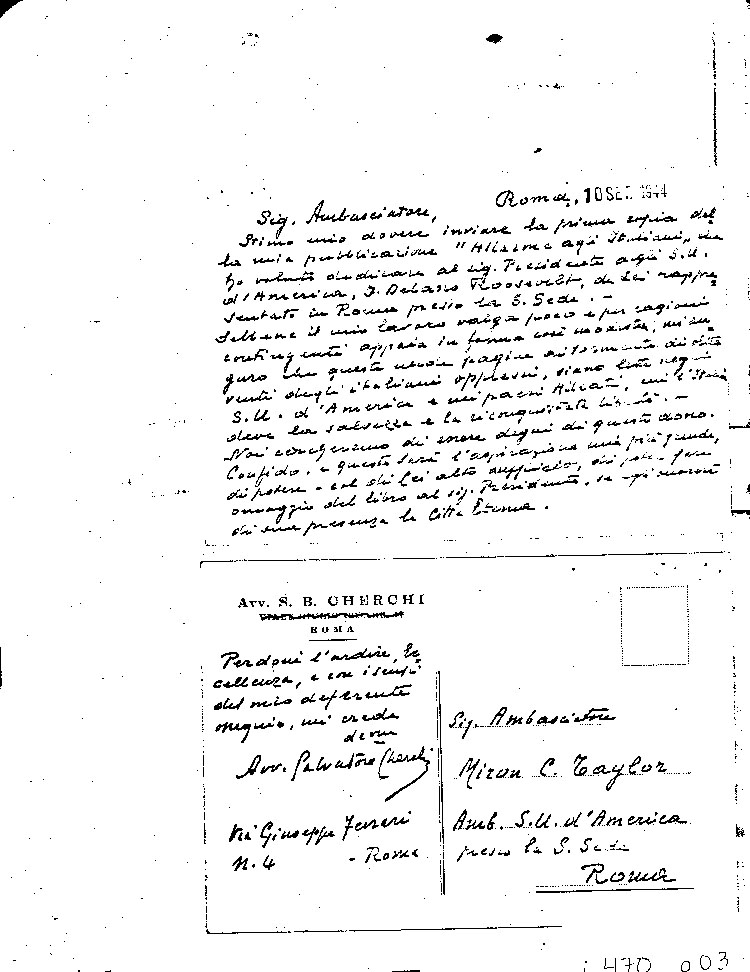 Roma, 10 SET. 1944
Sig. Ambasciatore,
Stimo mio dovere inviare la prima copia del
la mia pubblicazione "Allarme agli Italiani", che
ho voluto dedicare al sig. Presidente agli S.U.
d'America, F. Delano Roosevelt, da Lei rappre
sentato in Roma presso la S. Sede. -
Sebbene il mio lavoro valga poco e per ragioni
contingenti appaia in forma così modesta, mi au
guro che queste pagine
degli italiani oppressi, siano lette negli
S.U. d'America e nei paesi Alleati, cui l'Italia
deve la salvezza e la riconquistata libertà. -
Noi di essere degni di questo dono.
Confido, e questa sarà l'aspirazione mia più grande,
di potere - col di Lei alto appoggio, di fare
omaggio del libro al sig. Presidente, se
di sua presenza la Città Eterna.
Avv. S. B. CHERCHI
ROMA
Perdoni l'ardire, Ec
cellenza, e con i sensi
del mio deferente
ossequio, mi creda
devmo
Avv. Salvatore Cherchi
Via Giuseppe Ferrari
N. 4 - Roma
Sig. Ambasciatore
Miron C. Taylor
Amb. S.U. d'America
presso la S. Sede
Roma
470 003